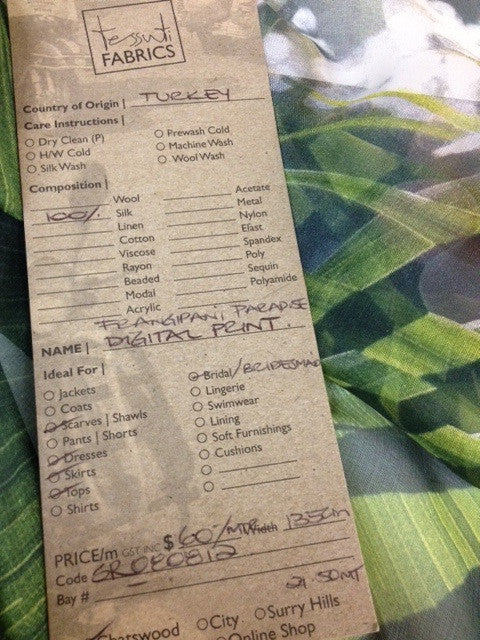 tessuti
FABRICS
Country of Origin | TURKEY
Care Instructions |
O Dry Clean (P) O Prewash Cold
O H/W Cold O Machine Wash
O Silk Wash O Wool Wash
Composition |
Wool Acetate
100% Silk Metal
Linen Nylon
Cotton Elast
Viscose Spandex
Rayon Poly
Beaded Sequin
Modal Polyamide
Acrylic
FRANGIPANI PARADISE
NAME | DIGITAL PRINT.
Ideal For |
O Jackets O Bridal /BRIDESMAID
O Coats O Lingerie
O Scarves | Shawls O Swimwear
O Pants | Shorts O Lining
O Dresses O Soft Furnishings
O Skirts O Cushions
O Tops O
O Shirts O
PRICE/m GST INC $60/MTR Width 135cm
Code
Bay # 21.50MT
Chatswood O City O Surry Hills
O Online Shop